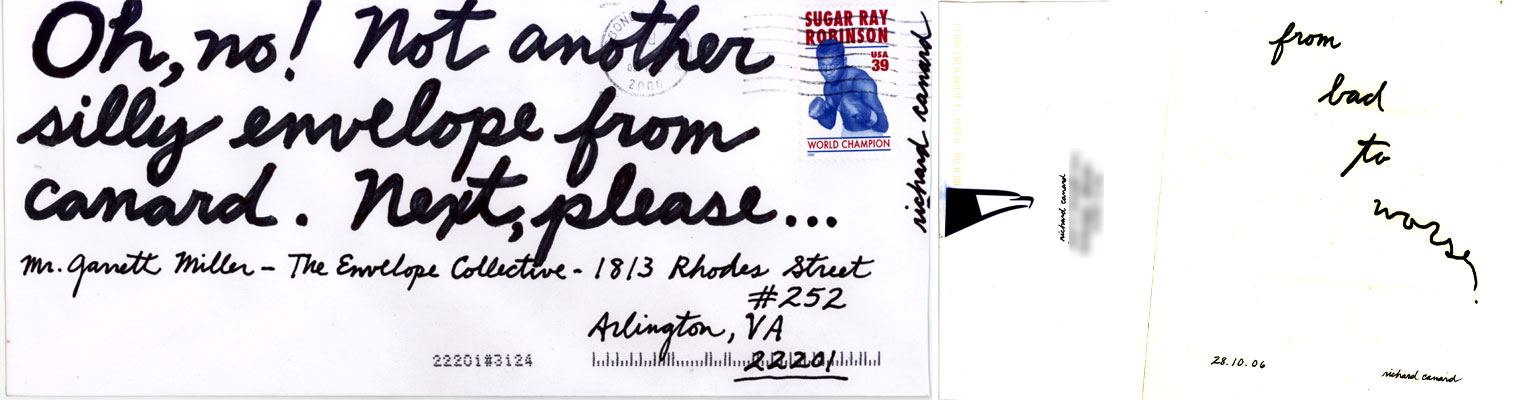 Oh, no! Not another
silly envelope from
canard. Next, please...
Mr. Garrett Miller - The Envelope Collective - 1813 Rhodes Street
#252
Arlington, VA
22201
22201#3124
SUGAR RAY
ROBINSON
USA
39
WORLD CHAMPION
2006
richard canard
richard canard
from
bad
to
worse
28.10.06
richard canard